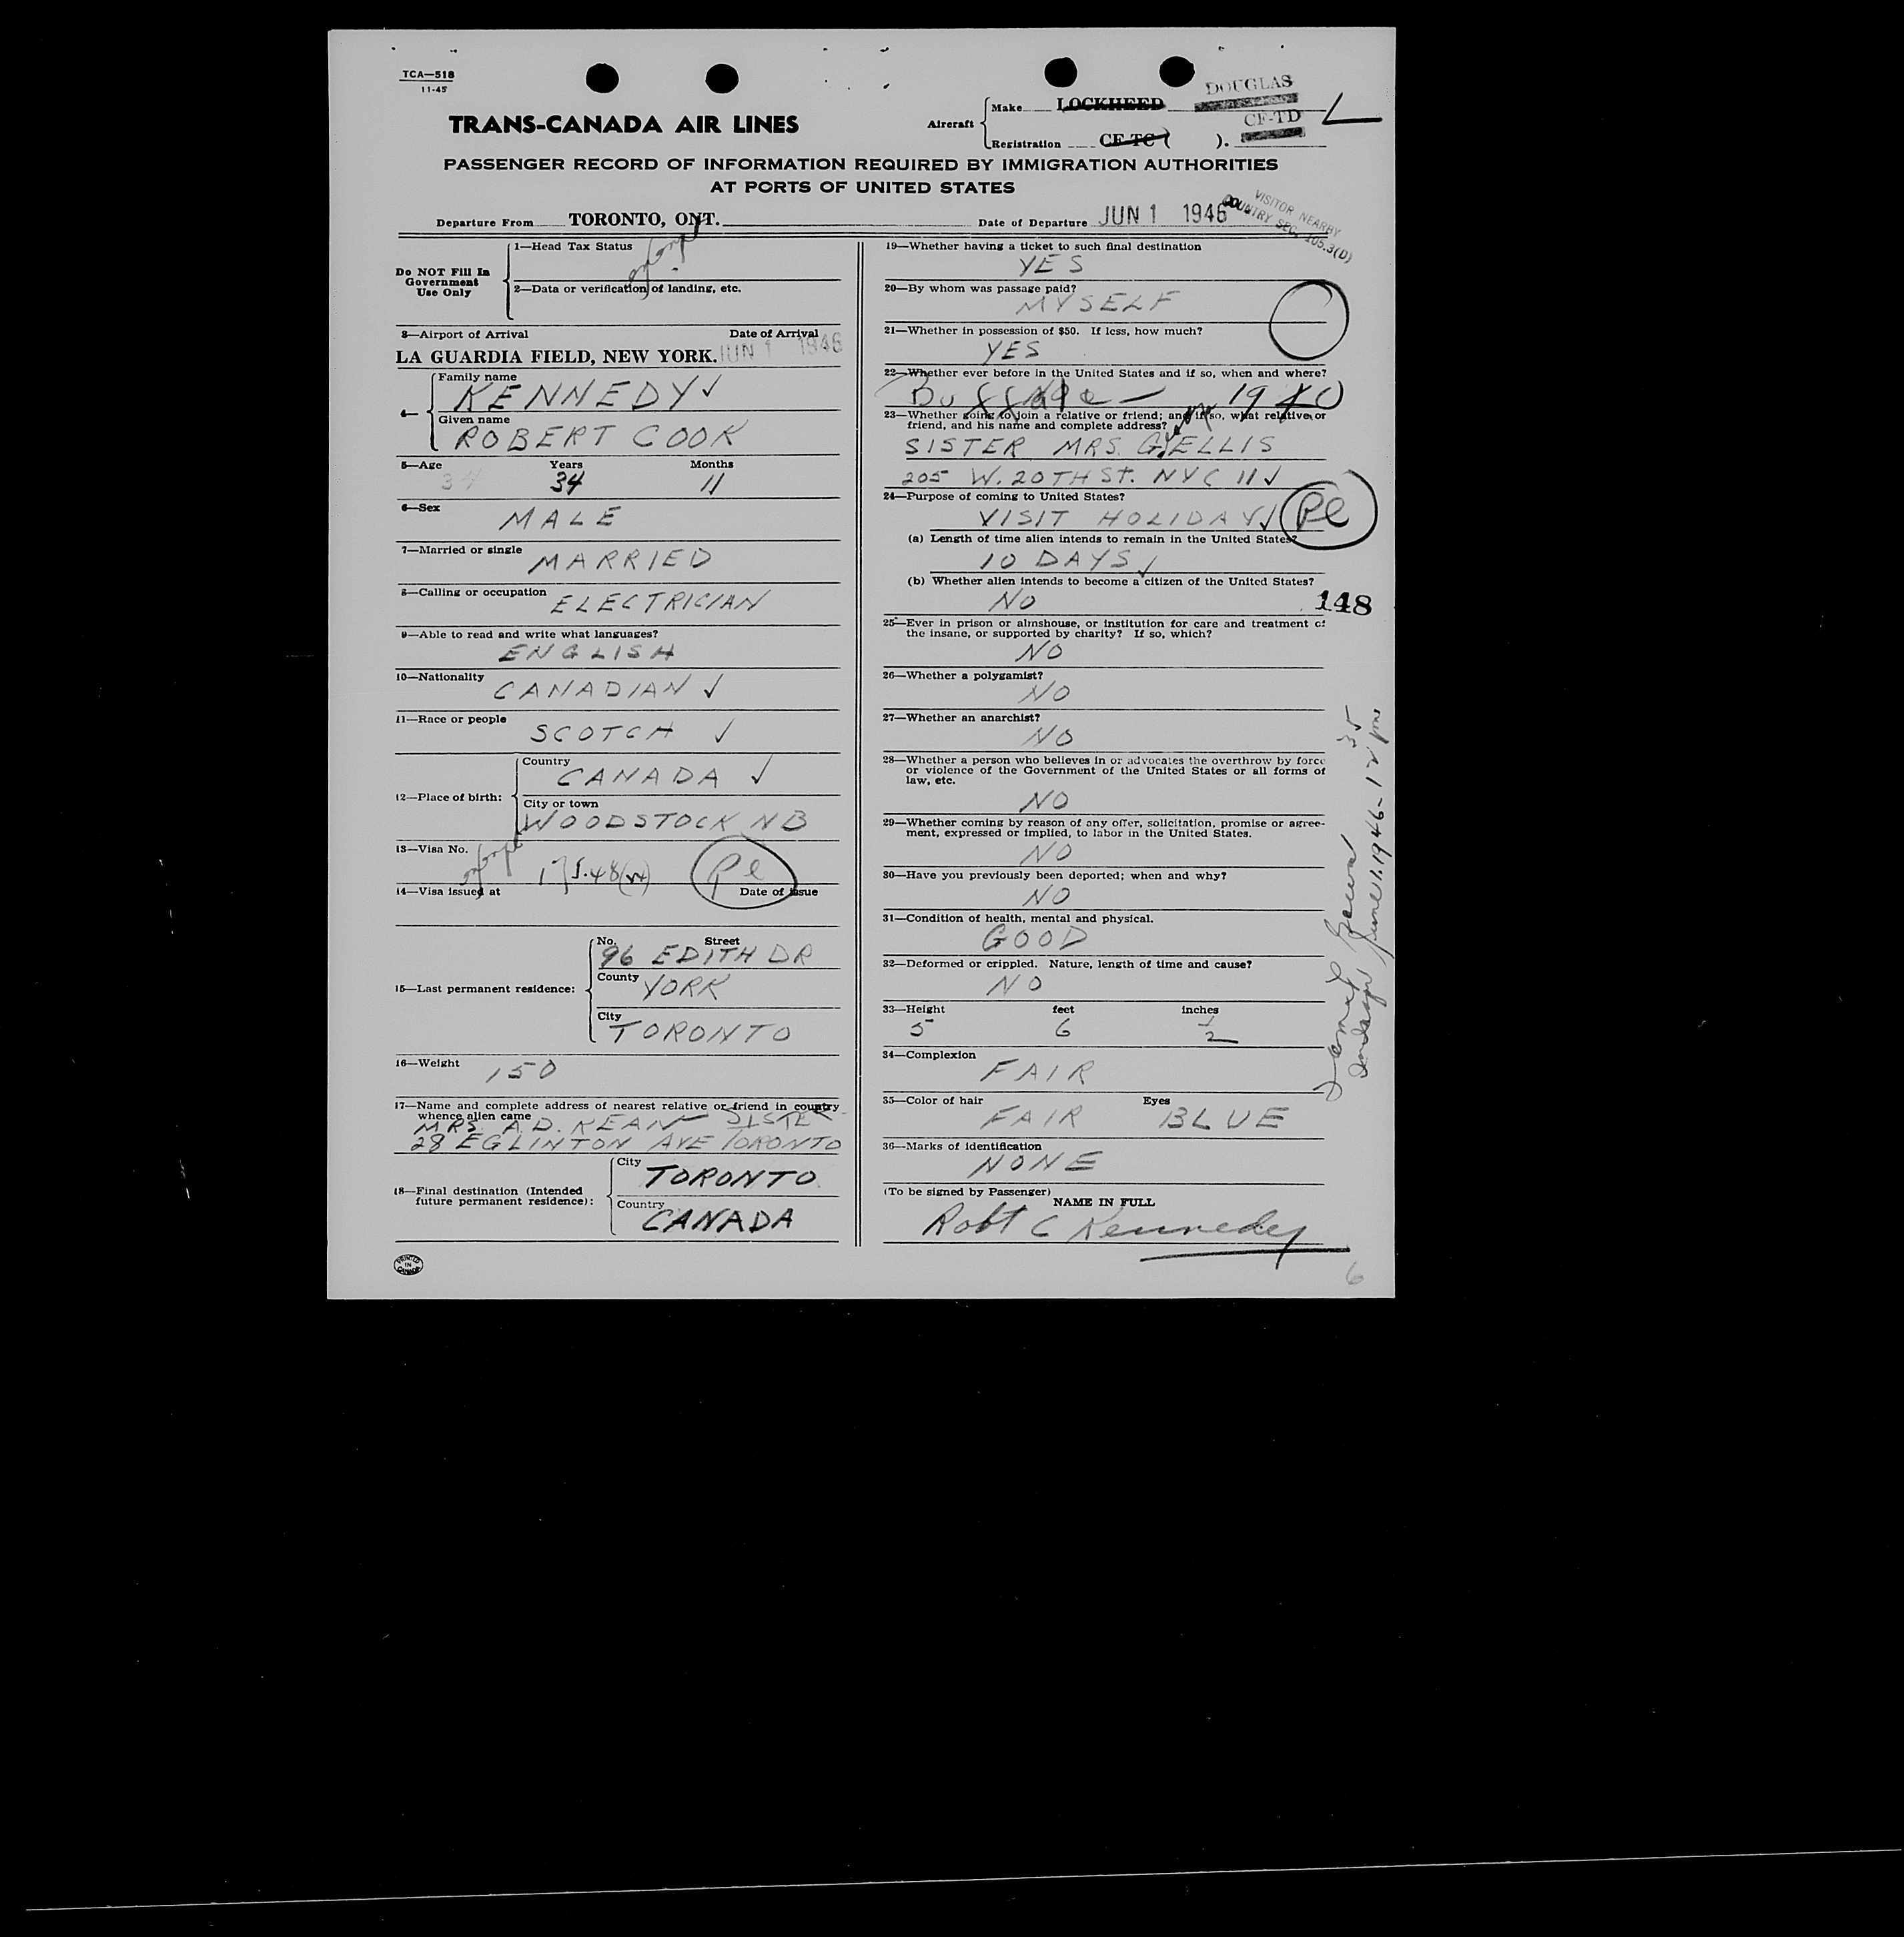 TCA—518
11-45
TRANS-CANADA AIR LINES
Aircraft
Make LOCKHEED DOUGLAS
Registration CF-TC ( ). CF-TD
PASSENGER RECORD OF INFORMATION REQUIRED BY IMMIGRATION AUTHORITIES
AT PORTS OF UNITED STATES
VISITOR NEARBY
COUNTRY SEC. 105.3(D)
Departure From TORONTO, ONT. Date of Departure JUN 1 1946
Do NOT Fill In
Government
Use Only
1—Head Tax Status
2—Data or verification of landing, etc.
3—Airport of Arrival Date of Arrival
LA GUARDIA FIELD, NEW YORK. JUN 1 1946
4—
Family name
KENNEDY ✓
Given name
ROBERT COOK
5—Age Years Months
34 34 11
6—Sex
MALE
7—Married or single
MARRIED
8—Calling or occupation
ELECTRICIAN
9—Able to read and write what languages?
ENGLISH
10—Nationality
CANADIAN ✓
11—Race or people
SCOTCH ✓
12—Place of birth:
Country
CANADA ✓
City or town
WOODSTOCK NB
13—Visa No.
14—Visa issued at Date of issue
15—Last permanent residence:
No. Street
96 EDITH DR
County
YORK
City
TORONTO
16—Weight
150
17—Name and complete address of nearest relative or friend in country
whence alien came
MRS. A.D. KEAN SISTER
28 EGLINTON AVE TORONTO
18—Final destination (Intended
future permanent residence):
City
TORONTO
Country
CANADA
PRINTED
IN
CANADA
19—Whether having a ticket to such final destination
YES
20—By whom was passage paid?
MYSELF
21—Whether in possession of $50. If less, how much?
YES
22—Whether ever before in the United States and if so, when and where?
Buffalo — 1940
23—Whether going to join a relative or friend; and if so, what relative or
friend, and his name and complete address?
SISTER MRS. G. ELLIS
205 W. 20TH St. NYC 11 ✓
24—Purpose of coming to United States?
VISIT HOLIDAY ✓
(a) Length of time alien intends to remain in the United States?
10 DAYS ✓
(b) Whether alien intends to become a citizen of the United States?
NO
148
25—Ever in prison or almshouse, or institution for care and treatment of
the insane, or supported by charity? If so, which?
NO
26—Whether a polygamist?
NO
27—Whether an anarchist?
NO
28—Whether a person who believes in or advocates the overthrow by force
or violence of the Government of the United States or all forms of
law, etc.
NO
29—Whether coming by reason of any offer, solicitation, promise or agree-
ment, expressed or implied, to labor in the United States.
NO
30—Have you previously been deported; when and why?
NO
31—Condition of health, mental and physical.
GOOD
32—Deformed or crippled. Nature, length of time and cause?
NO
33—Height feet inches
5 6 1/2
34—Complexion
FAIR
35—Color of hair Eyes
FAIR BLUE
36—Marks of identification
NONE
(To be signed by Passenger)
NAME IN FULL
Robt C Kennedy
6